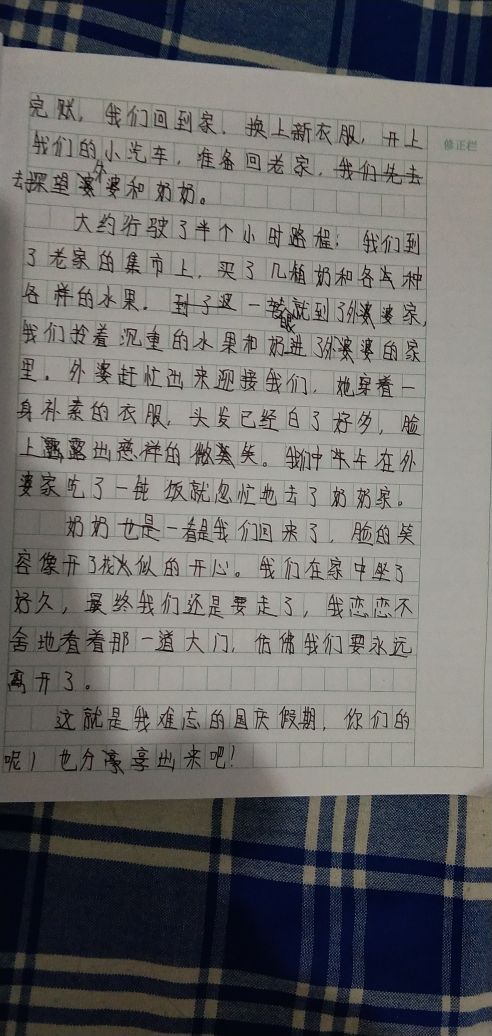 完赋，我们回到家，换上新衣服，开上
修正栏
我们的小汽车，准备回老家，我们先去
去探望外婆和奶奶。
大约行驶了半个小时路程；我们到
了老家的集市上，买了几植奶和各式种
各样的水果。到了这一眼就到了外婆家，
我们拎着沉重的水果和奶进了外婆的家
里。外婆赶忙出来迎接我们，她穿着一
身朴素的衣服，头发已经白了好多，脸
上露出慈祥的微笑。我们中午在外
婆家吃了一钝饭就忽忙地去了奶奶家。
奶奶也是一看是我们回来了，脸的笑
容像开了花似的开心。我们在家中坐了
好久，最终我们还是要走了，我恋恋不
舍地看着那一道大门，仿佛我们要永远
离开了。
这就是我难忘的国庆假期，你们的
呢！也分享出来吧！